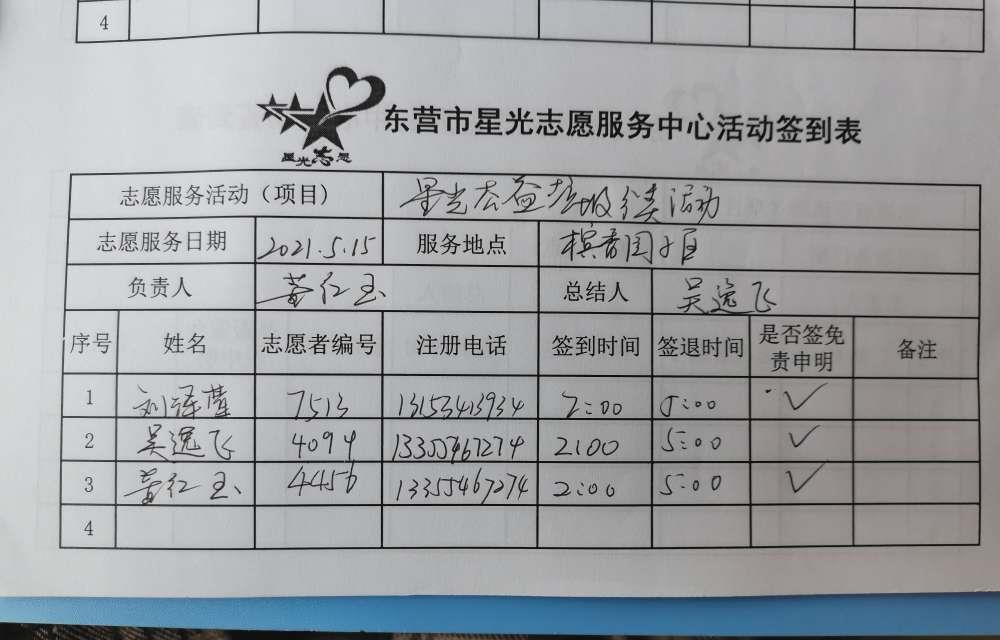 4
星光志愿
东营市星光志愿服务中心活动签到表
志愿服务活动（项目） 星光公益垃圾分类活动
志愿服务日期 2021.5.15 服务地点
负责人 董红玉 总结人 吴逸飞
序号 姓名 志愿者编号 注册电话 签到时间 签退时间 是否签免责申明 备注
1 刘泽莹 7513 13153413934 2:00 5:00 ✓
2 吴逸飞 4094 13355467274 2:00 5:00 ✓
3 董红玉 4456 13355467274 2:00 5:00 ✓
4